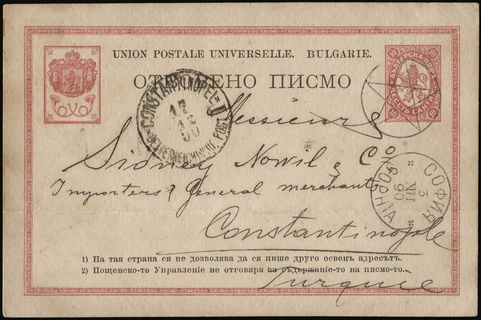 UNION POSTALE UNIVERSELLE. BULGARIE.
ОТКРЫТО ПИСМО
Messieurs
Sidney Nowil & Co
Importers & General merchants
Constantinople
Turquie
CONSTANTINOPEL
СОФИЯ
1) На тая страна ся не дозволява да ся пише друго освенъ адресътъ.
2) Пощенско-то Управление не отговаря за съдържание-то на писмо-то.